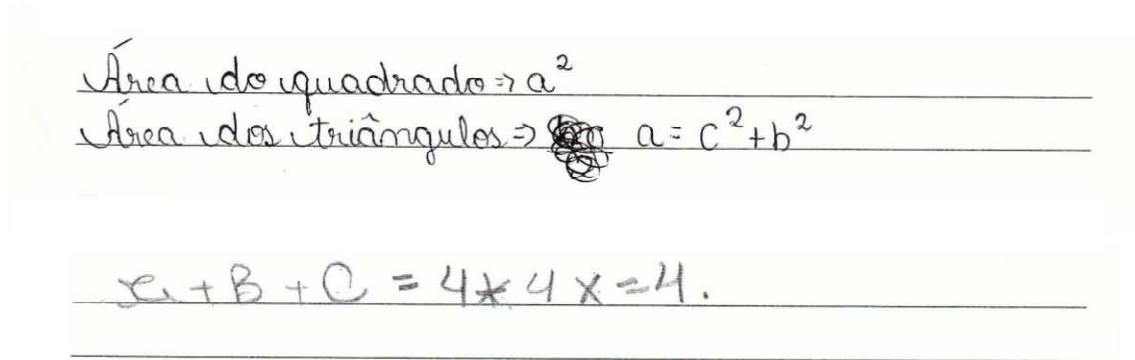 Área do quadrado => a²
Área dos triângulos => a = c² + b²
+ B + C = 4 * 4 x = 4.